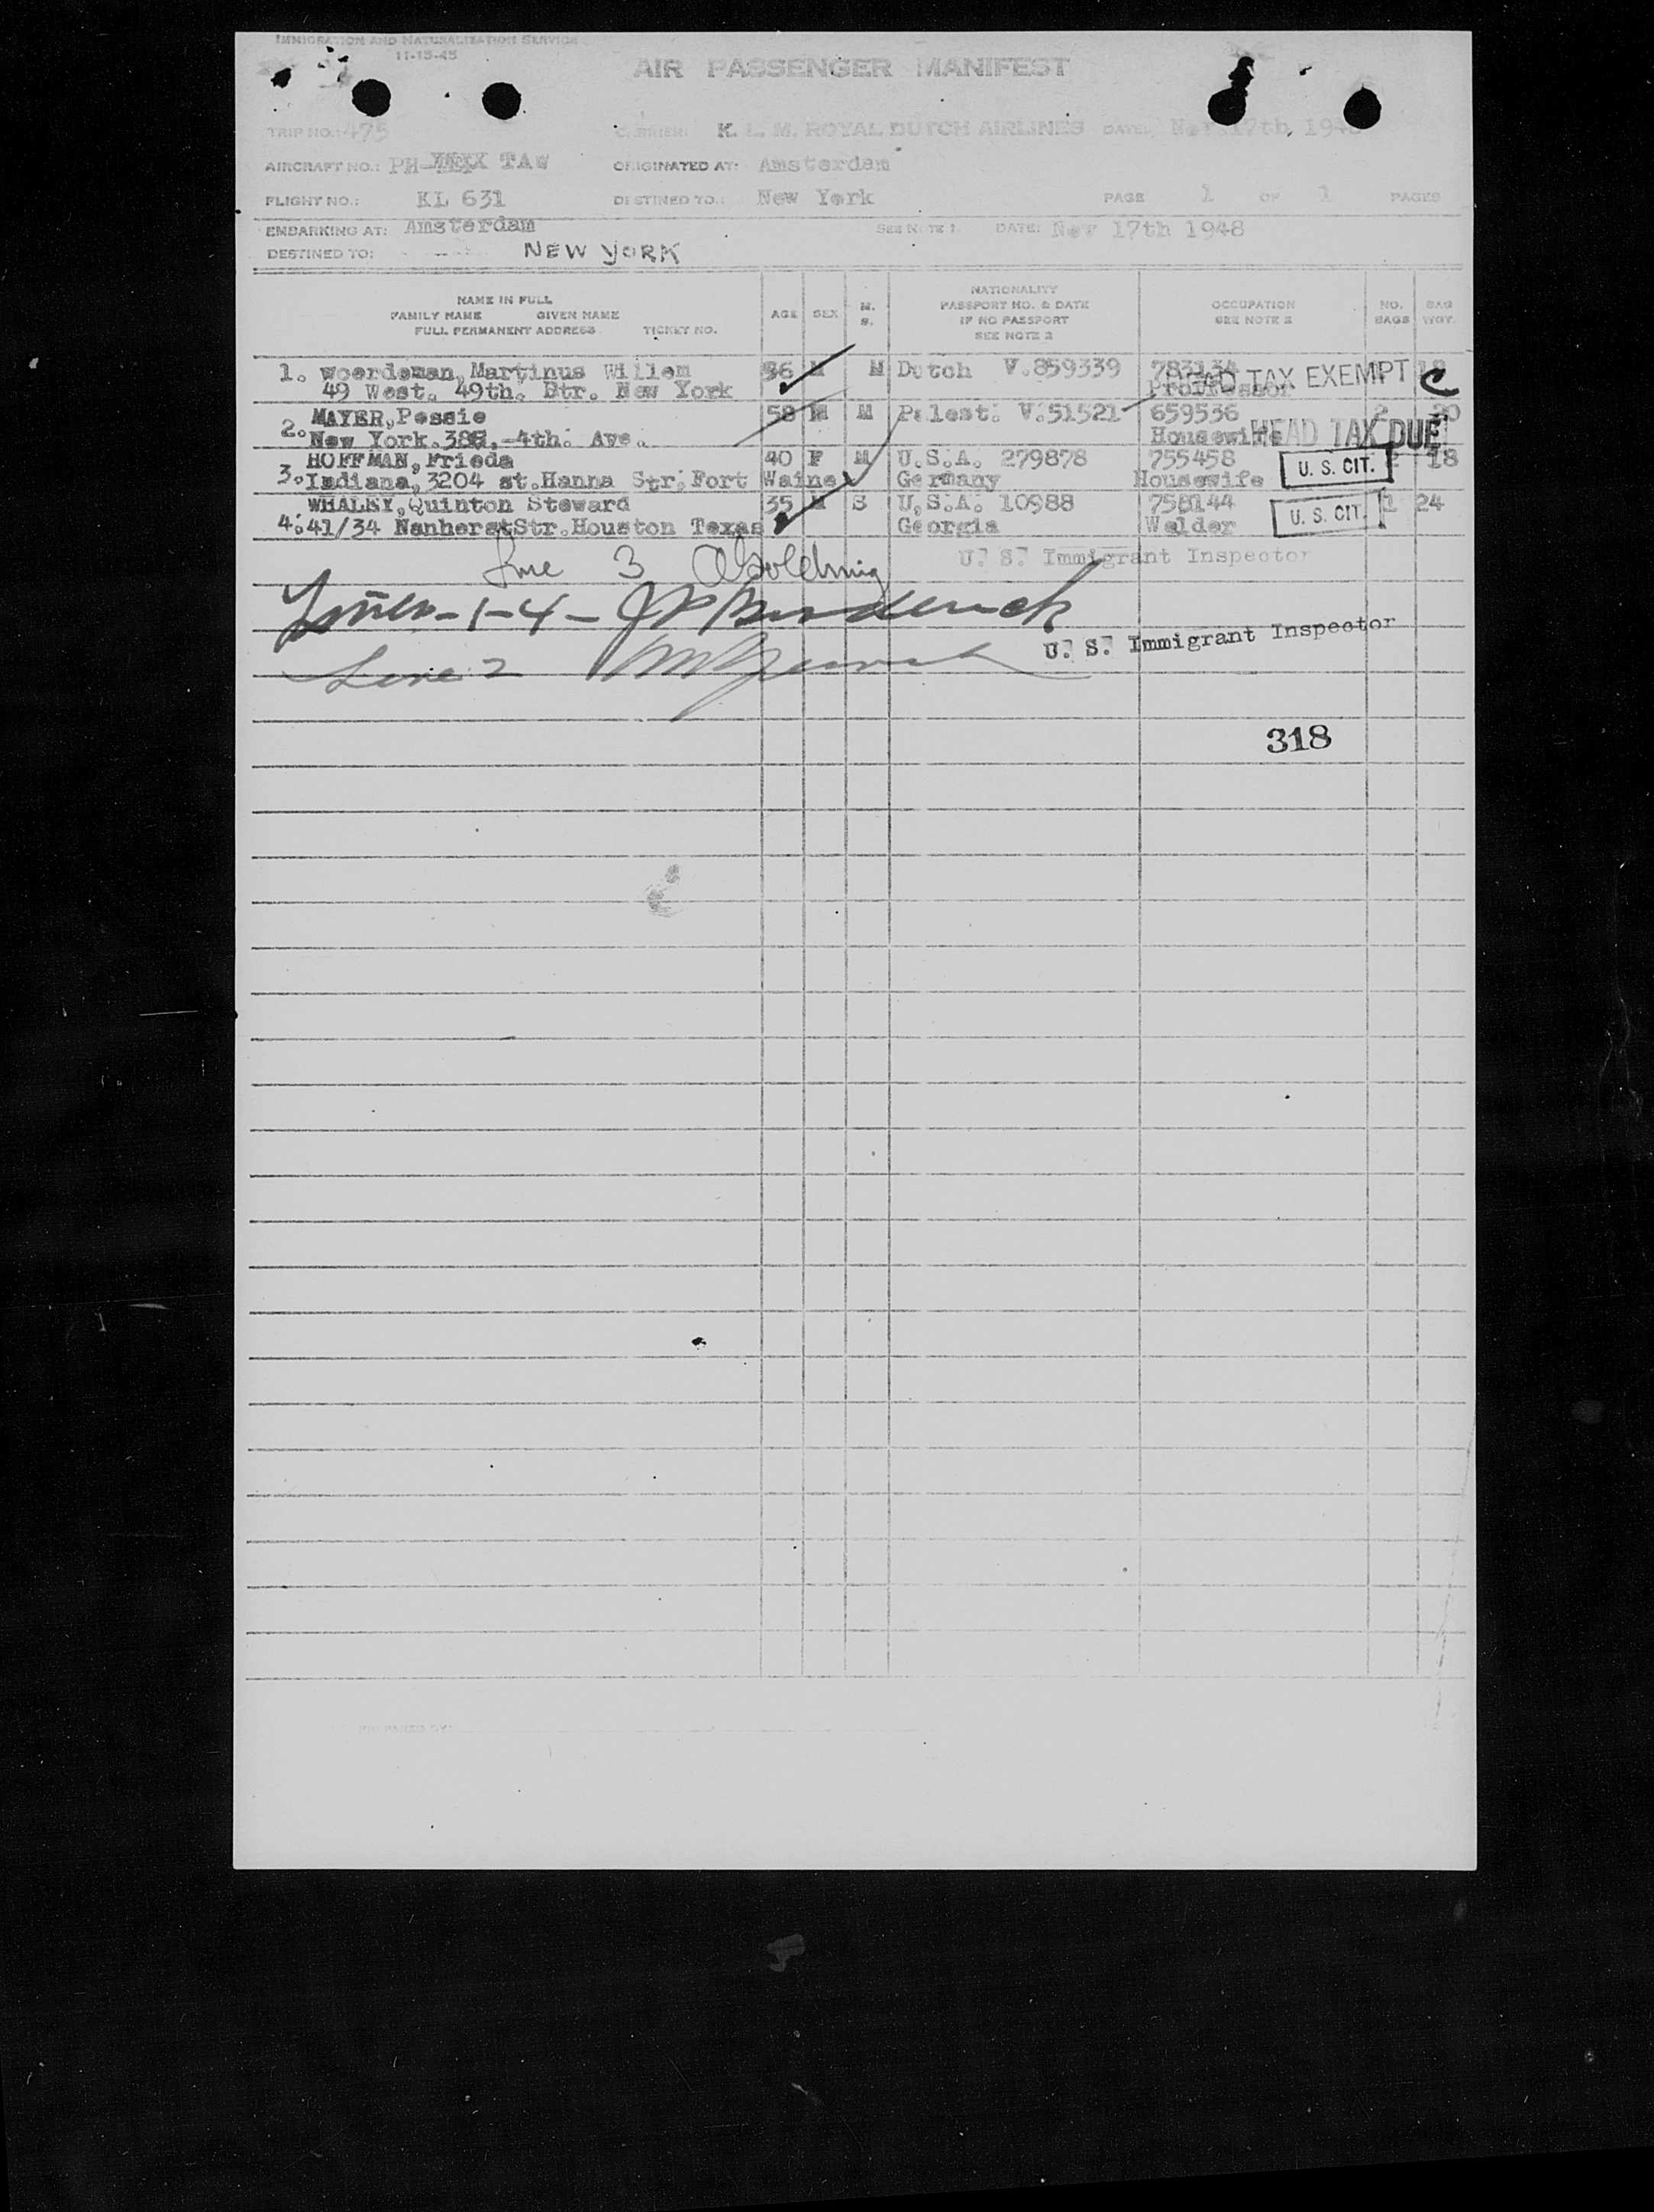 IMMIGRATION AND NATURALIZATION SERVICE
11-15-45
AIR PASSENGER MANIFEST
TRIP NO.: 475 CARRIER: K. L. M. ROYAL DUTCH AIRLINES DATE: Nov.17th, 1948
AIRCRAFT NO.: PH- TAW ORIGINATED AT: Amsterdam
FLIGHT NO.: KL 631 DESTINED TO.: New York PAGE 1 OF 1 PAGES
EMBARKING AT: Amsterdam SEE NOTE 1 DATE: Nov 17th 1948
DESTINED TO: NEW YORK
NAME IN FULL
FAMILY NAME GIVEN NAME
FULL PERMANENT ADDRESS TICKET NO.
AGE SEX M. S.
NATIONALITY
PASSPORT NO. & DATE
IF NO PASSPORT
SEE NOTE 2
OCCUPATION
SEE NOTE 2
NO. BAGS
BAG WGT.
1. Woerdeman, Martinus Willem M M Dutch V.859339 783134 18
49 West. 49th. Str. New York Professor HEAD TAX EXEMPT C
2. MAYER, Pessie 58 M M Palest. V.51521 659536 2 20
New York. 4th. Ave. Housewife HEAD TAX DUE
3. HOFFMAN, Frieda 40 F M U.S.A. 279878 755458 18
Indiana, 3204 st. Hanna Str. Fort Waine Germany Housewife U. S. CIT.
4. WHALEY, Quinton Steward 35 M S U.S.A. 10988 758144 1 24
41/34 Nanherst Str. Houston Texas Georgia Welder U. S. CIT.
Line 3 U. S. Immigrant Inspector
Lines - 1-4 -
U. S. Immigrant Inspector
Line 2
318
PREPARED BY: